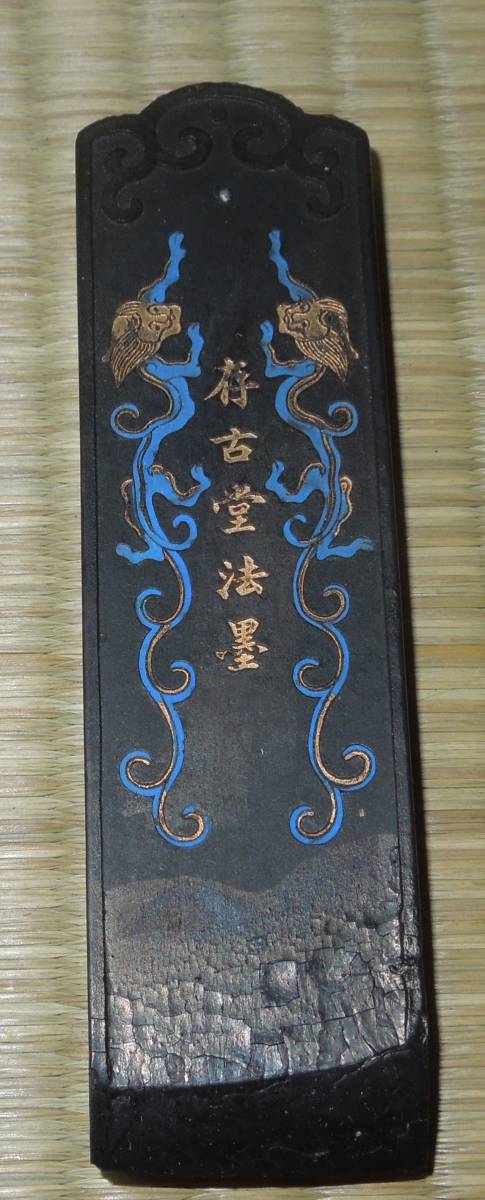 存古堂法墨